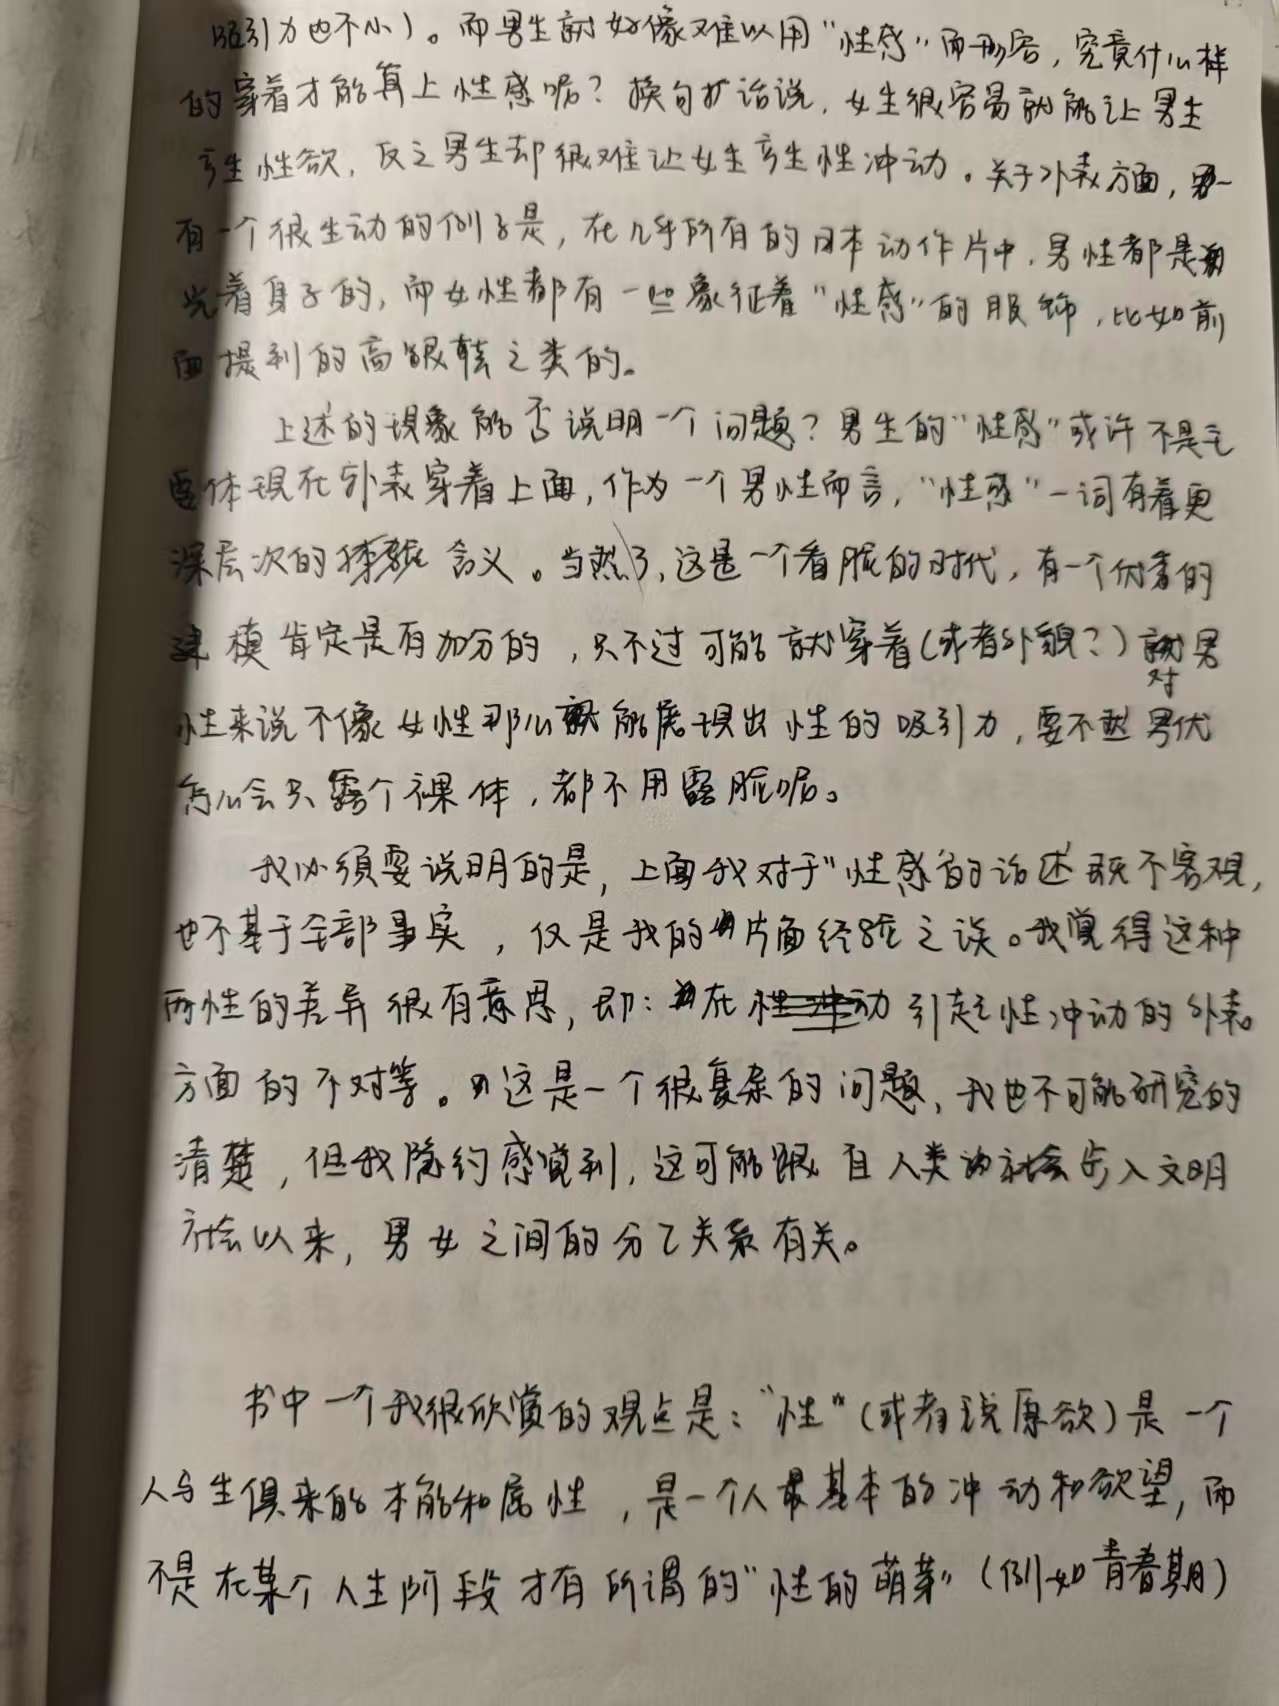 吸引力也不小）。而男生就好像难以用“性感”而形容，究竟什么样
的穿着才能算上性感呢？换句扩话说，女生很容易就能让男生
产生性欲，反之男生却很难让女生产生性冲动。关于外表方面，
有一个很生动的例子是，在几乎所有的日本动作片中，男性都是
光着身子的，而女性都有一些象征着“性感”的服饰，比如前
面提到的高跟鞋之类的。
上述的现象能否说明一个问题？男生的“性感”或许不是主
要体现在外表穿着上面，作为一个男性而言，“性感”一词有着更
深层次的含义。当然了，这是一个看脸的时代，有一个优秀的
建模肯定是有加分的，只不过可能就穿着（或者外貌？）对男
性来说不像女性那么能展现出性的吸引力，要不然男优
怎么会只露个裸体，都不用露脸呢。
我必须要说明的是，上面我对于“性感”的话述既不客观，
也不基于全部事实，仅是我的片面经验之谈。我觉得这种
两性的差异很有意思，即：在引起性冲动的外表
方面的不对等。这是一个很复杂的问题，我也不可能研究的
清楚，但我隐约感觉到，这可能跟自人类社会步入文明
社会以来，男女之间的分工关系有关。
书中一个我很欣赏的观点是：“性”（或者说原欲）是一个
人与生俱来的本能和属性，是一个人最基本的冲动和欲望，而
不是在某个人生阶段才有所谓的“性的萌芽”（例如青春期）